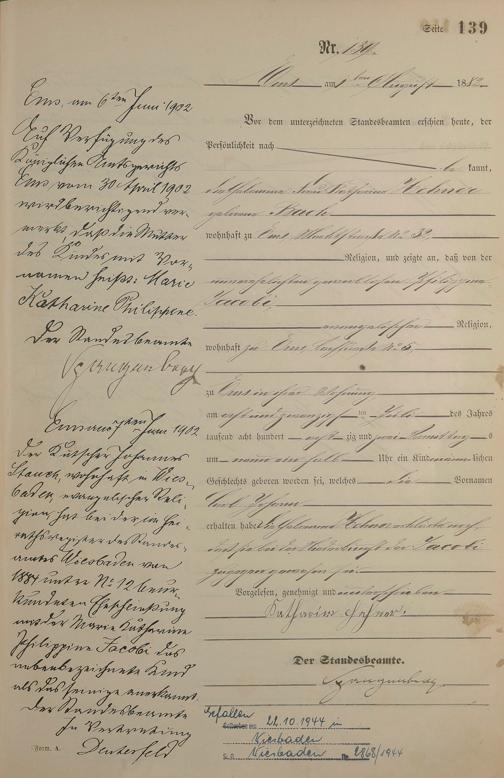 Seite 139
Nr. 139.
Ems am 1ten August 1882
Vor dem unterzeichneten Standesbeamten erschien heute, der
Persönlichkeit nach
be kannt,
die Hebamme Katharina Hehner
geborene Bach
wohnhaft zu Ems
Religion, und zeigte an, daß von der
unverehelichten Philippine
Jacobi
evangelischer Religion,
wohnhaft zu Ems
zu Ems in ihrer Wohnung
am ein und zwanzigsten Juli des Jahres
tausend acht hundert achtzig und zwei
um neun ein halb Uhr ein Kind männlichen
Geschlechts geboren worden sei, welches die Vornamen
Carl
erhalten habe. Die Hebamme Hehner erklärte noch,
daß sie bei der Niederkunft der Jacobi
zugegen gewesen sei
Vorgelesen, genehmigt und unterschrieben
Katharina Hehner.
Der Standesbeamte.
Spangenberg
Ems, am 6ten Juni 1902
Auf Verfügung des
Königlichen Amtsgerichts
Ems vom 30 April 1902
wird berichtigend ver-
merkt, daß die Mutter
des Kindes mit Vor-
namen heißt: Marie
Katharine Philippine.
Der Standesbeamte
Spangenberg
Ems, am 7ten Juni 1902
Der Kutscher Johannes
Stauch, wohnhaft in Wies-
baden, evangelischer Reli-
gion, hat bei der im Hei-
rathsregister des Standes-
amtes Wiesbaden von
1884 unter No 12 beur-
kundeten Eheschließung
mit der Marie Katharine
Philippine Jacobi das
nebenbezeichnete Kind
als das seinige anerkannt.
Der Standesbeamte
In Vertretung
Form. A.
Gefallen 22.10.1944 in
Wiesbaden
Wiesbaden 2868/1944